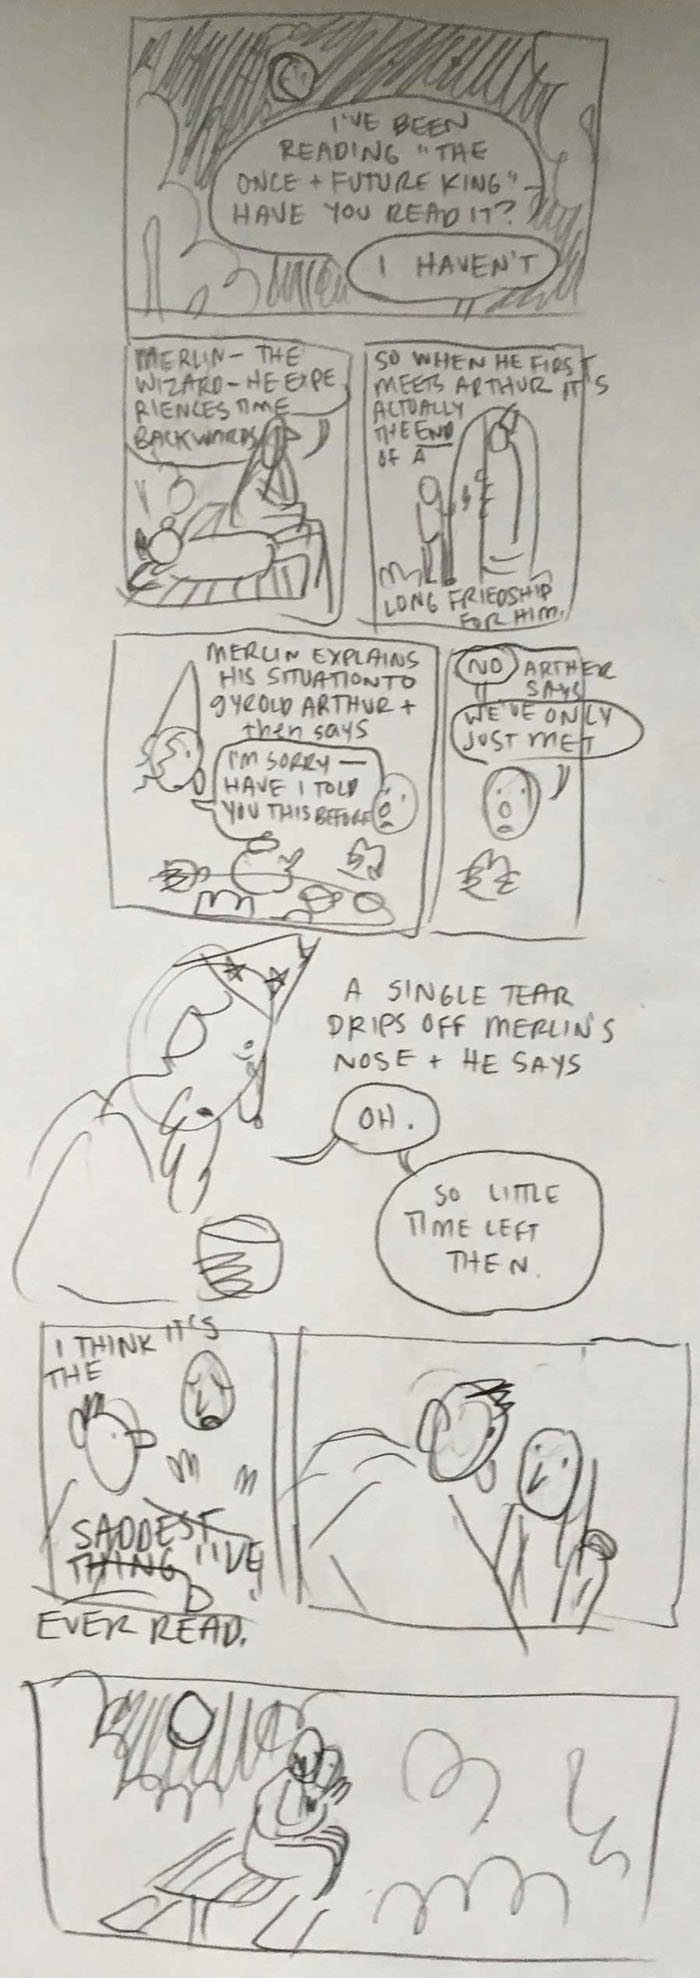 I'VE BEEN
READING "THE
ONCE + FUTURE KING"
HAVE YOU READ IT?
I HAVEN'T
MERLIN - THE
WIZARD - HE EXPE
RIENCES TIME
BACKWARDS
SO WHEN HE FIRST
MEETS ARTHUR IT'S
ACTUALLY
THE END
OF A
LONG FRIEDSHIP
FOR HIM.
MERLIN EXPLAINS
HIS SITUATION TO
9 YR OLD ARTHUR +
then says
I'M SORRY —
HAVE I TOLD
YOU THIS BEFORE
NO ARTHER
SAYS
WE'VE ONLY
JUST MET
A SINGLE TEAR
DRIPS OFF MERLIN'S
NOSE + HE SAYS
OH.
SO LITTLE
TIME LEFT
THEN.
I THINK IT'S
THE
SADDEST
THING I'VE
EVER READ.